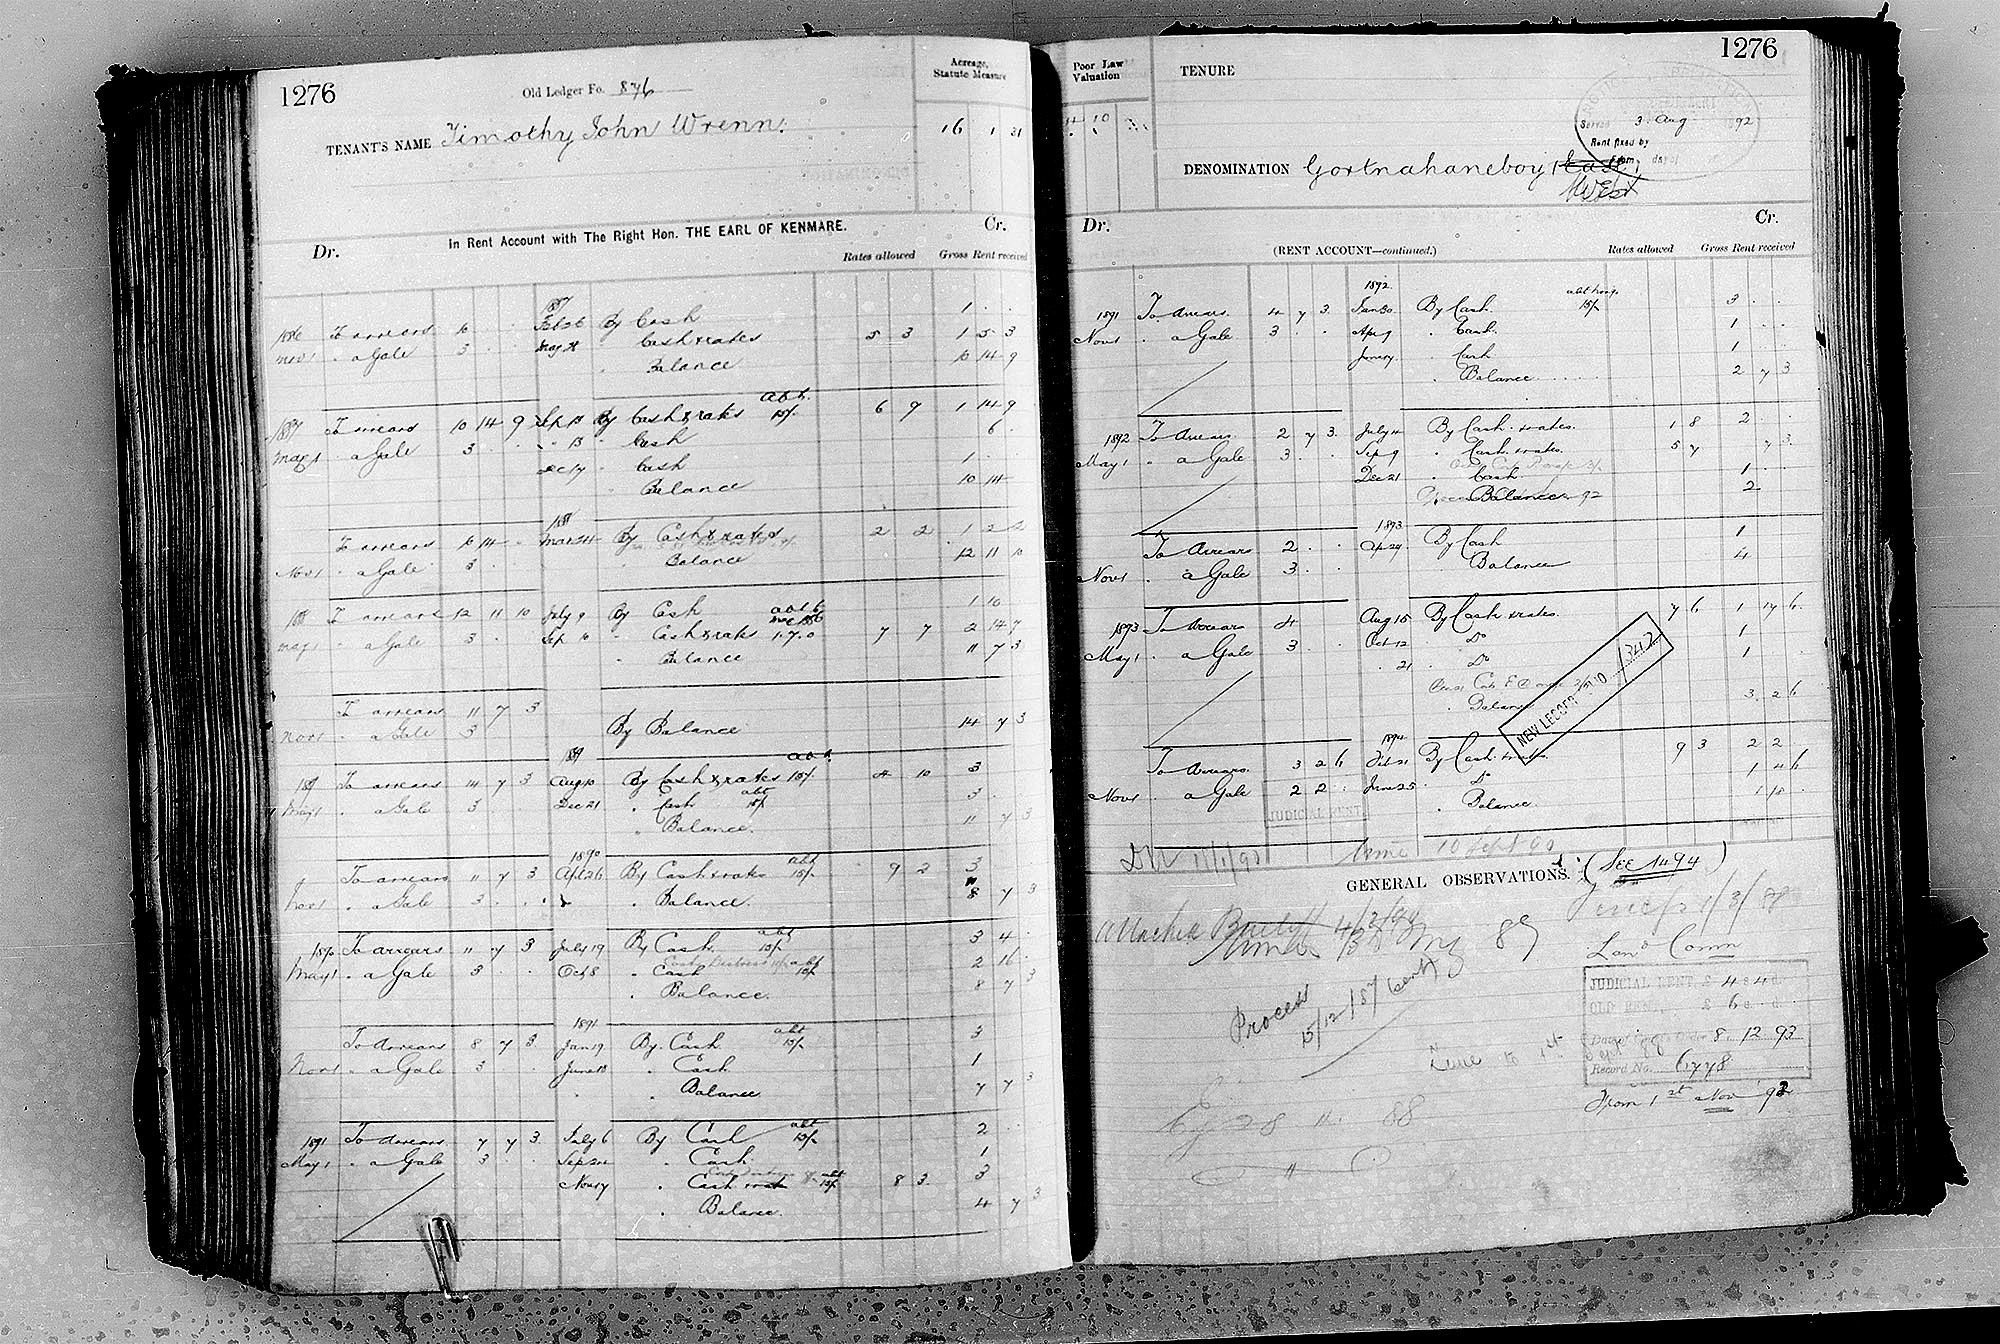 1276
Old Ledger Fo. 876
Acreage, Statute Measure
TENANT'S NAME Timothy John Wrenn.
16 1 21
In Rent Account with The Right Hon. THE EARL OF KENMARE.
Dr. Cr.
Rates allowed Gross Rent received
1887
1886 To arrears 10 . . Feb 26 By Cash 1 . .
Nov 1 " a Gale 3 . . May 28 " Cash & rates 5 3 1 5 3
" Balance 10 14 9
1887 To arrears 10 14 9 Sep 13 By Cash & rates abt. 15/- 6 9 1 14 9
May 1 " a Gale 3 . . " 13 " Cash 6 .
Dec 14 " Cash 1
" Balance 10 14
1888
To arrears 10 14 . Mar 24 By Cash & rates 2 2 1 2 2
Nov 1 " a Gale 3 . " Balance 12 11 10
1888 To arrears 12 11 10 July 9 By Cash 1 10
May 1 " a Gale 3 . Sep 10 " Cash & rates 1.7.0 7 7 2 14 7
" Balance 11 7 3
To arrears 11 7 3
Nov 1 " a Gale 3 By Balance 14 7 3
1889
1889 To arrears 14 7 3 Aug 10 By Cash & rates abt. 15/- 4 10 3
May 1 " a Gale 3 Dec 21 " Cash abt 15/- 3 .
" Balance. 11 7 3
1890
To arrears 11 7 3 Apl 26 By Cash & rates abt 15/- 9 2 3
Nov 1 " a Gale 3 . . " Balance. 8 7 3
1890 To arrears 11 7 3 July 19 By Cash abt 15/- 3 4 .
May 1 " a Gale 3 . . Oct 8 " Cash abt 15/- 2 16 .
" Balance. 8 7 3
1891
To Arrears 8 7 3 Jan 19 By. Cash abt 15/- 3
Nov 1 " a Gale 3 . . June 18 " Cash 1
" Balance 7 7 3
1891 To Arrears. 7 7 3. July 6 By Cash abt 15/- 2
May 1 " a Gale 3 . . Sep 24 " Cash. 1
Nov 17 " Cash & rates abt 15/- 8 3. 3
" Balance. 4 7 3
1276
Poor Law Valuation
TENURE
4 10
Served 3 Aug 1892
Rent fixed by
From day of
DENOMINATION Gortnahaneboy East
West
Dr. Cr.
(RENT ACCOUNT—continued.) Rates allowed Gross Rent received
1892
1891 To Arrears. 4 7 3. Jan 30. By Cash. 15/- 3 . .
Nov 1 " a Gale 3 . . Apl 9 " Cash. 1 . .
" Cash 1
" Balance 2 7 3
1892 To Arrears. 2 7 3. July 4 By Cash & rates. 1 8 2 .
May 1 " a Gale 3 . . Sep 9 " Cash & rates. 5 7 7 3.
Dec 21 " Cash. 1 .
Balance 2
1893
To Arrears 2 . . Ap 29. By Cash 1
Nov 1 . a Gale 3 . . Balance 4
1893 To Arrears 4 Aug 15 By Cash & rates. 7 6 1 17 6.
May 1 . a Gale 3 . Oct 12 " Do 1
. 21 . Do 1
. Balance 3 2 6
NEW LEDGER FOLIO 1342
1894
To Arrears. 3 2 6 Feb 21 By Cash & rates. 9 3 2 2
Nov 1 a Gale 2 2 . June 25 . Do 1 4 6
. Balance. 1 18 .
JUDICIAL RENT.
10 Sept 90
GENERAL OBSERVATIONS. (SEE 1494)
89
Land Comn
Process
15/12/87 (sent)
JUDICIAL RENT, £ 4 s 4 d.
OLD RENT, £ 6 s. d.
Date of Order 8. 12 93
Record No. 6778
From 1st Nov 93
28 11. 88